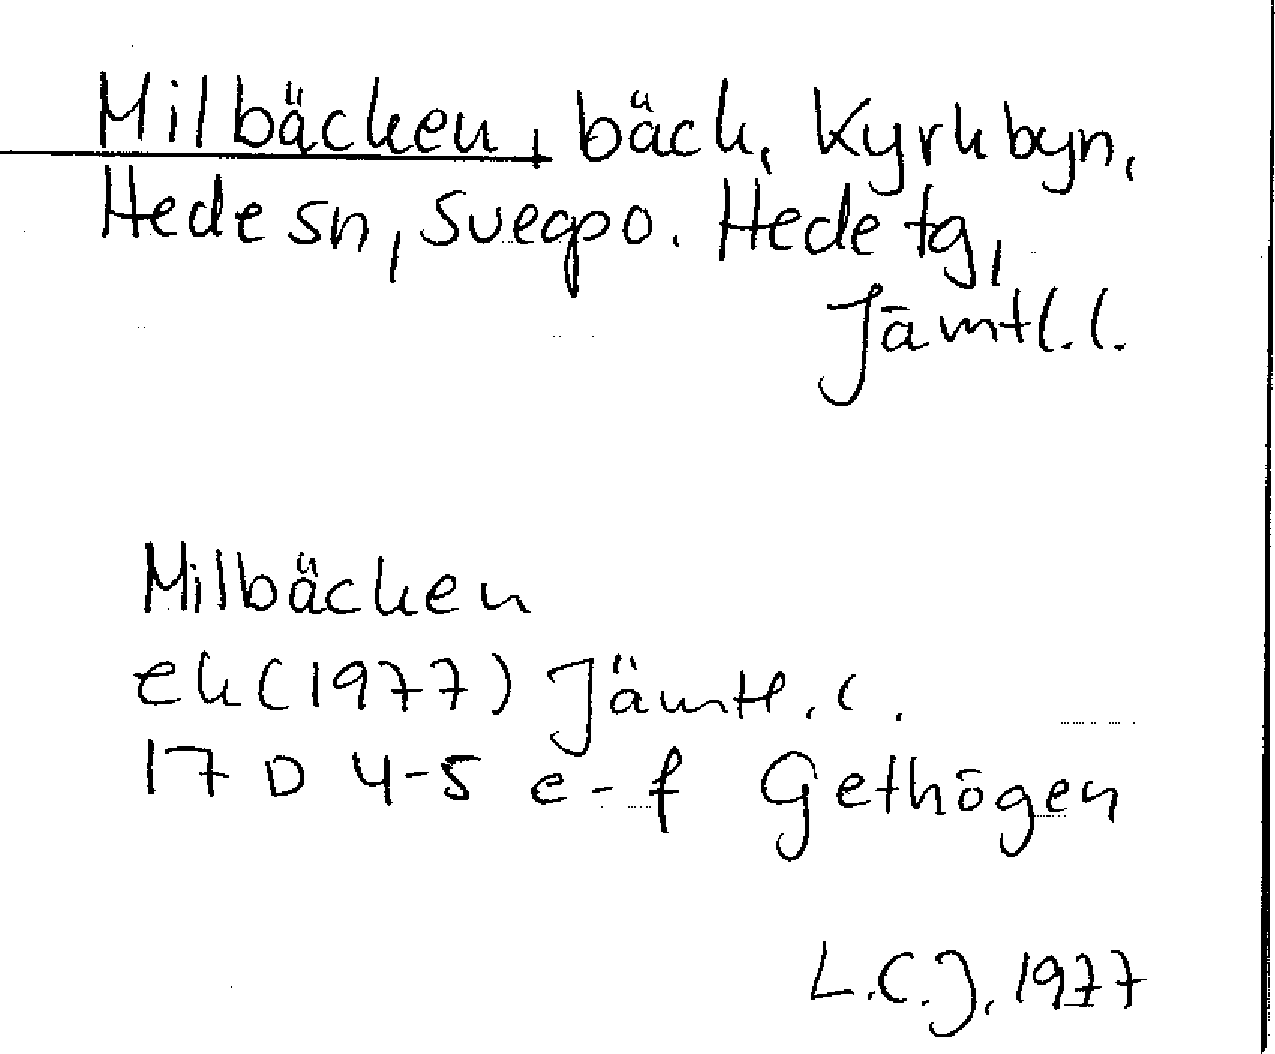 Milbäcken, bäck, Kyrkbyn,
Hede sn, Svegpo. Hede tg,
Jämtl.l.
Milbäcken
ek (1977) Jämtl.l.
17 D 4-5 e-f Gethögen
L.C.J. 1977